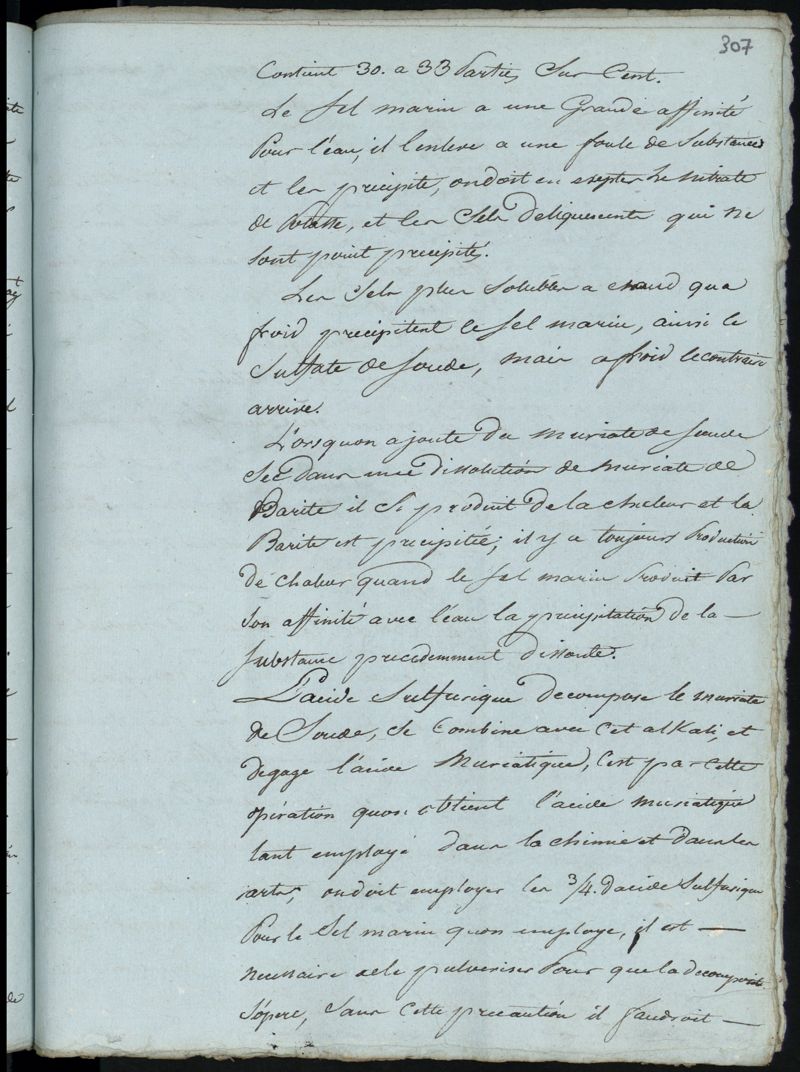 307
Contient 30. a 33 Parties Sur Cent.
Le Sel marin a une Grande affinité
Pour l'eau, il l'enleve a une foule de Substances
et les precipite, on doit en exepter Le nitrate
de Potasse, et les Sels deliquescents qui ne
sont point precipités.
Les Sels plus Solubles a chaud qua
froid precipitent le Sel marin, ainsi le
Sulfate de Soude, mais a froid le contraire
arrive.
Lorsquon ajoute du muriate de Soude
Sec dans une dissolution de muriate de
Barite il Se produit de la chaleur et la
Barite est precipitée, il y a toujours Production
de chaleur quand le Sel marin Produit Par
Son affinité avec l'eau la precipitation de la —
Substance precedemment dissoute.
L'acide Sulfurique decompose le muriate
de Soude, Se Combine avec Cet alKali, et
degage l'acide Muriatique, C'est par cette
opération quon obtient l'acide muriatique
tant employé dans la chimie et dans les
arts, on doit employer les 3/4. dacide Sulfurique
Pour le Sel marin quon employe, il est —
necessaire de le pulveriser Pour que la decomposit.
S'opere, Sans Cette precaution il faudroit —